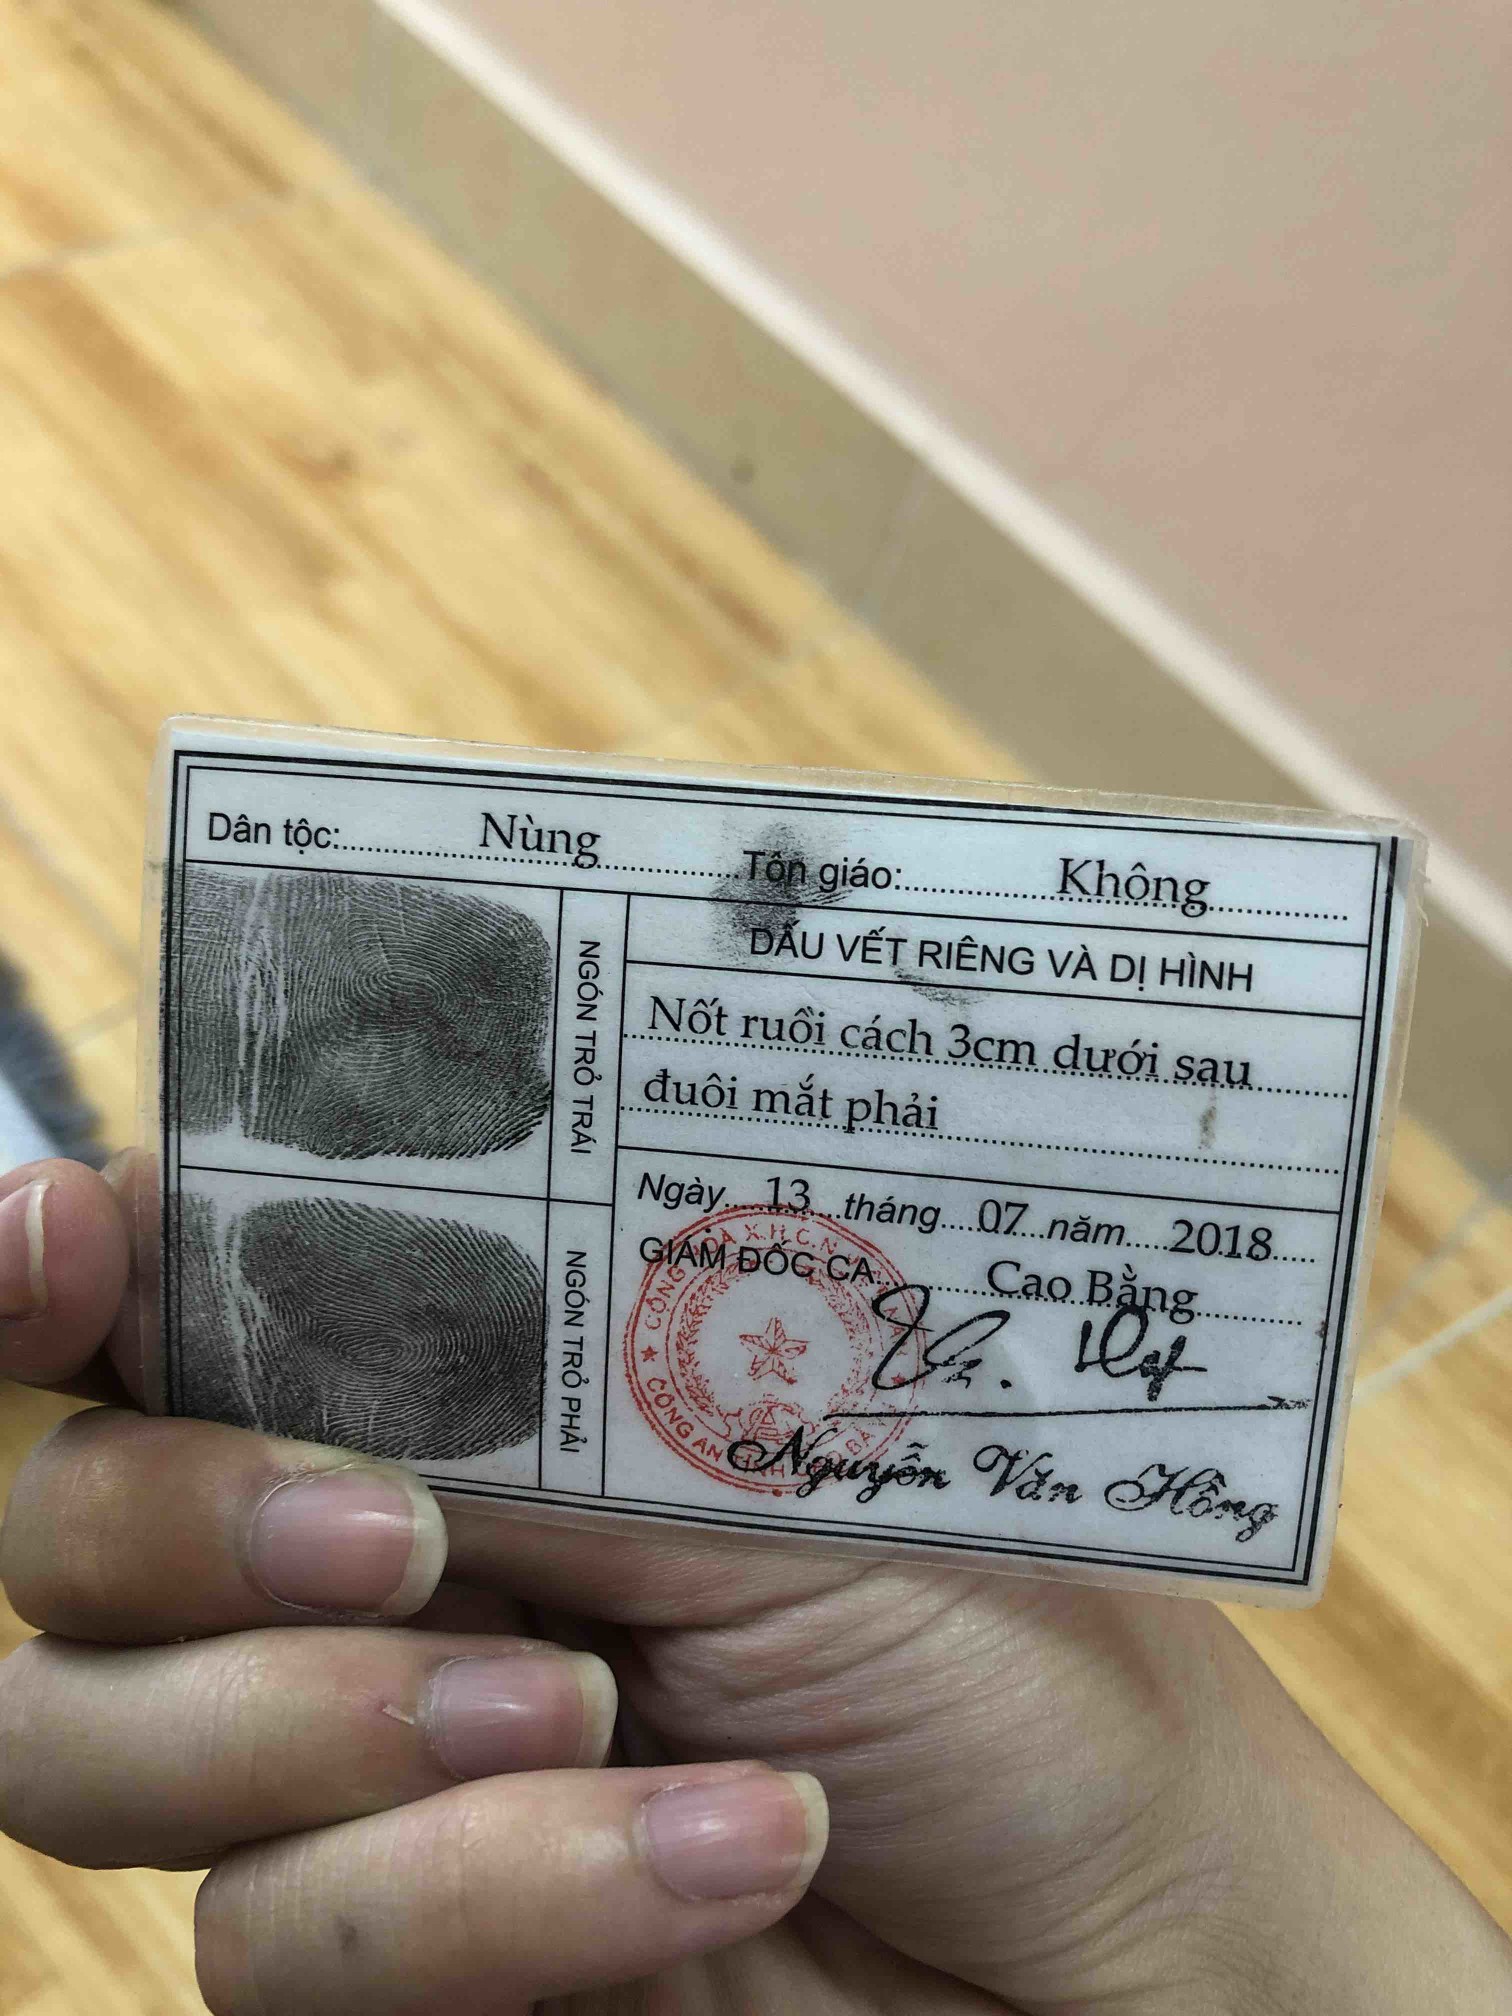 Dân tộc: Nùng Tôn giáo: Không
NGÓN TRỎ TRÁI
NGÓN TRỎ PHẢI
DẤU VẾT RIÊNG VÀ DỊ HÌNH
Nốt ruồi cách 3cm dưới sau
đuôi mắt phải
Ngày 13 tháng 07 năm 2018
GIÁM ĐỐC CA Cao Bằng
CÔNG AN TỈNH
Nguyễn Văn Hồng